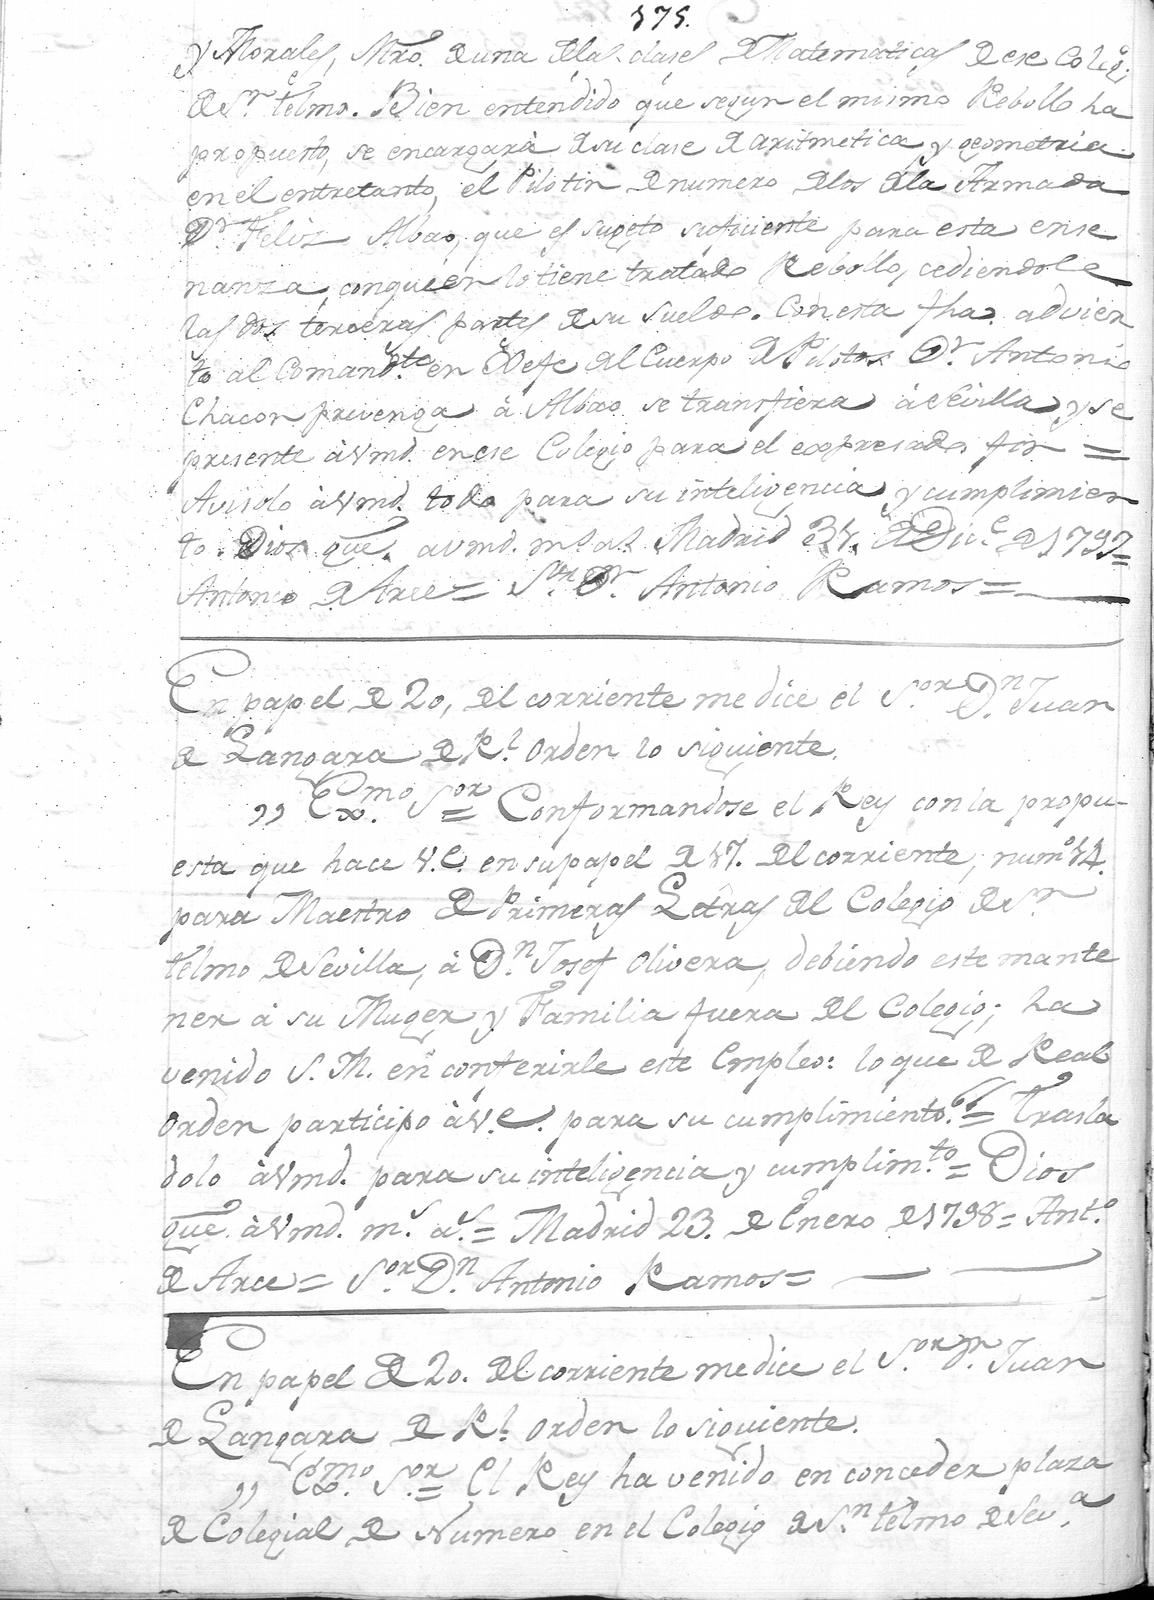 175.
y Morales, Mro. de una de las clases de Matematicas de ese Colegº
de Sn. telmo. Bien entendido que segun el mismo Rebollo ha
propuesto, se encargarà de su clase de aritmetica y geometria
en el entretanto, el Pilotin de numero de los de la Armada
Dn. Feliz Albao, que es sugeto suficiente para esta ense
nanza, con quien lo tiene tratado Rebollo, cediendole
las dos terceras partes de su sueldo. Con esta fha. advier
to al Comandte. en Xefe del Cuerpo de Pilotos Dn. Antonio
Chacon prevenga à Albao se transfiera à Sevilla, y se
presente à Vmd. en ese Colegio para el expresado fin =
Avisolo à Vmd. todo para su inteligencia, y cumplimien
to. Dios gue. a vmd. ms. as. Madrid 31. de Dice. de 1797=
Antonio de Arce = Sor. Dn. Antonio Ramos =
En papel de 20, del corriente me dice el Sor. Dn. Juan
de Langara de Rl. orden lo siguiente.
,, Exmo. Sor. = Conformandose el Rey con la propu-
esta que hace V.E. en su papel de 17. del corriente, numº 14.
para Maestro de Primeras Letras del Colegio de Sn
telmo de Sevilla, à Dn. Josef Olivera, debiendo este mante
ner à su Muger y Familia fuera del Colegio; ha
venido S. M. en conferirle este Empleo: lo que de Real
orden participo à V.E. para su cumplimiento." = Trasla
dolo à Vmd. para su inteligencia y cumplimto. = Dios
gue. à Vmd. ms. as. = Madrid 23. de Enero de 1798 = Anto.
de Arce = Sor. Dn. Antonio Ramos =
En papel de 20. del corriente me dice el Sor. Dn. Juan
de Langara de Rl. orden lo siguiente.
,, Exmo. Sor. = El Rey ha venido en conceder plaza
de Colegial de Numero en el Colegio de Sn. telmo de Seva.